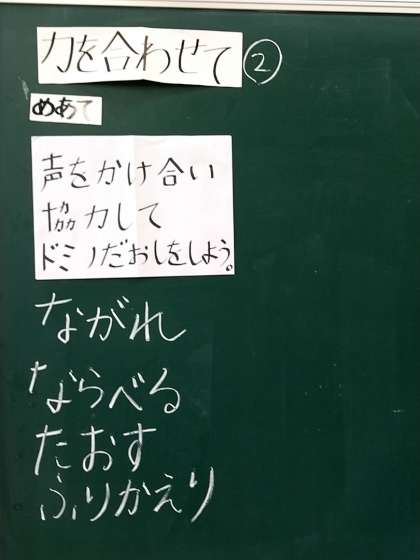 力を合わせて ②
めあて
声をかけ合い
協力して
ドミノだおしをしよう。
ながれ
ならべる
たおす
ふりかえり